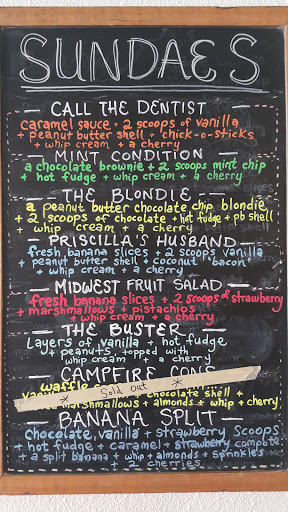 SUNDAES
CALL THE DENTIST
caramel sauce + 2 scoops of vanilla
+ peanut butter shell + chick-o-sticks
+ whip cream + a cherry
MINT CONDITION
a chocolate brownie + 2 scoops mint chip
+ hot fudge + whip cream + a cherry
THE BLONDIE
a peanut butter chocolate chip blondie
+ 2 scoops of chocolate + hot fudge + pb shell
+ whip cream + a cherry
PRISCILLA'S HUSBAND
fresh banana slices + 2 scoops vanilla
+ peanut butter shell + coconut "bacon"
+ whip cream + a cherry
MIDWEST FRUIT SALAD
fresh banana slices + 2 scoops strawberry
+ marshmallows + pistachios
+ whip cream + a cherry
THE BUSTER
layers of vanilla + hot fudge
+ peanuts, topped with
whip cream + a cherry
CAMPFIRE CONE
waffle
* Sold out *
chocolate shell +
marshmallows + almonds + whip + cherry
BANANA SPLIT
chocolate, vanilla + strawberry scoops
+ hot fudge + caramel + strawberry compote
+ a split banana + whip + almonds + sprinkles
+ 2 cherries